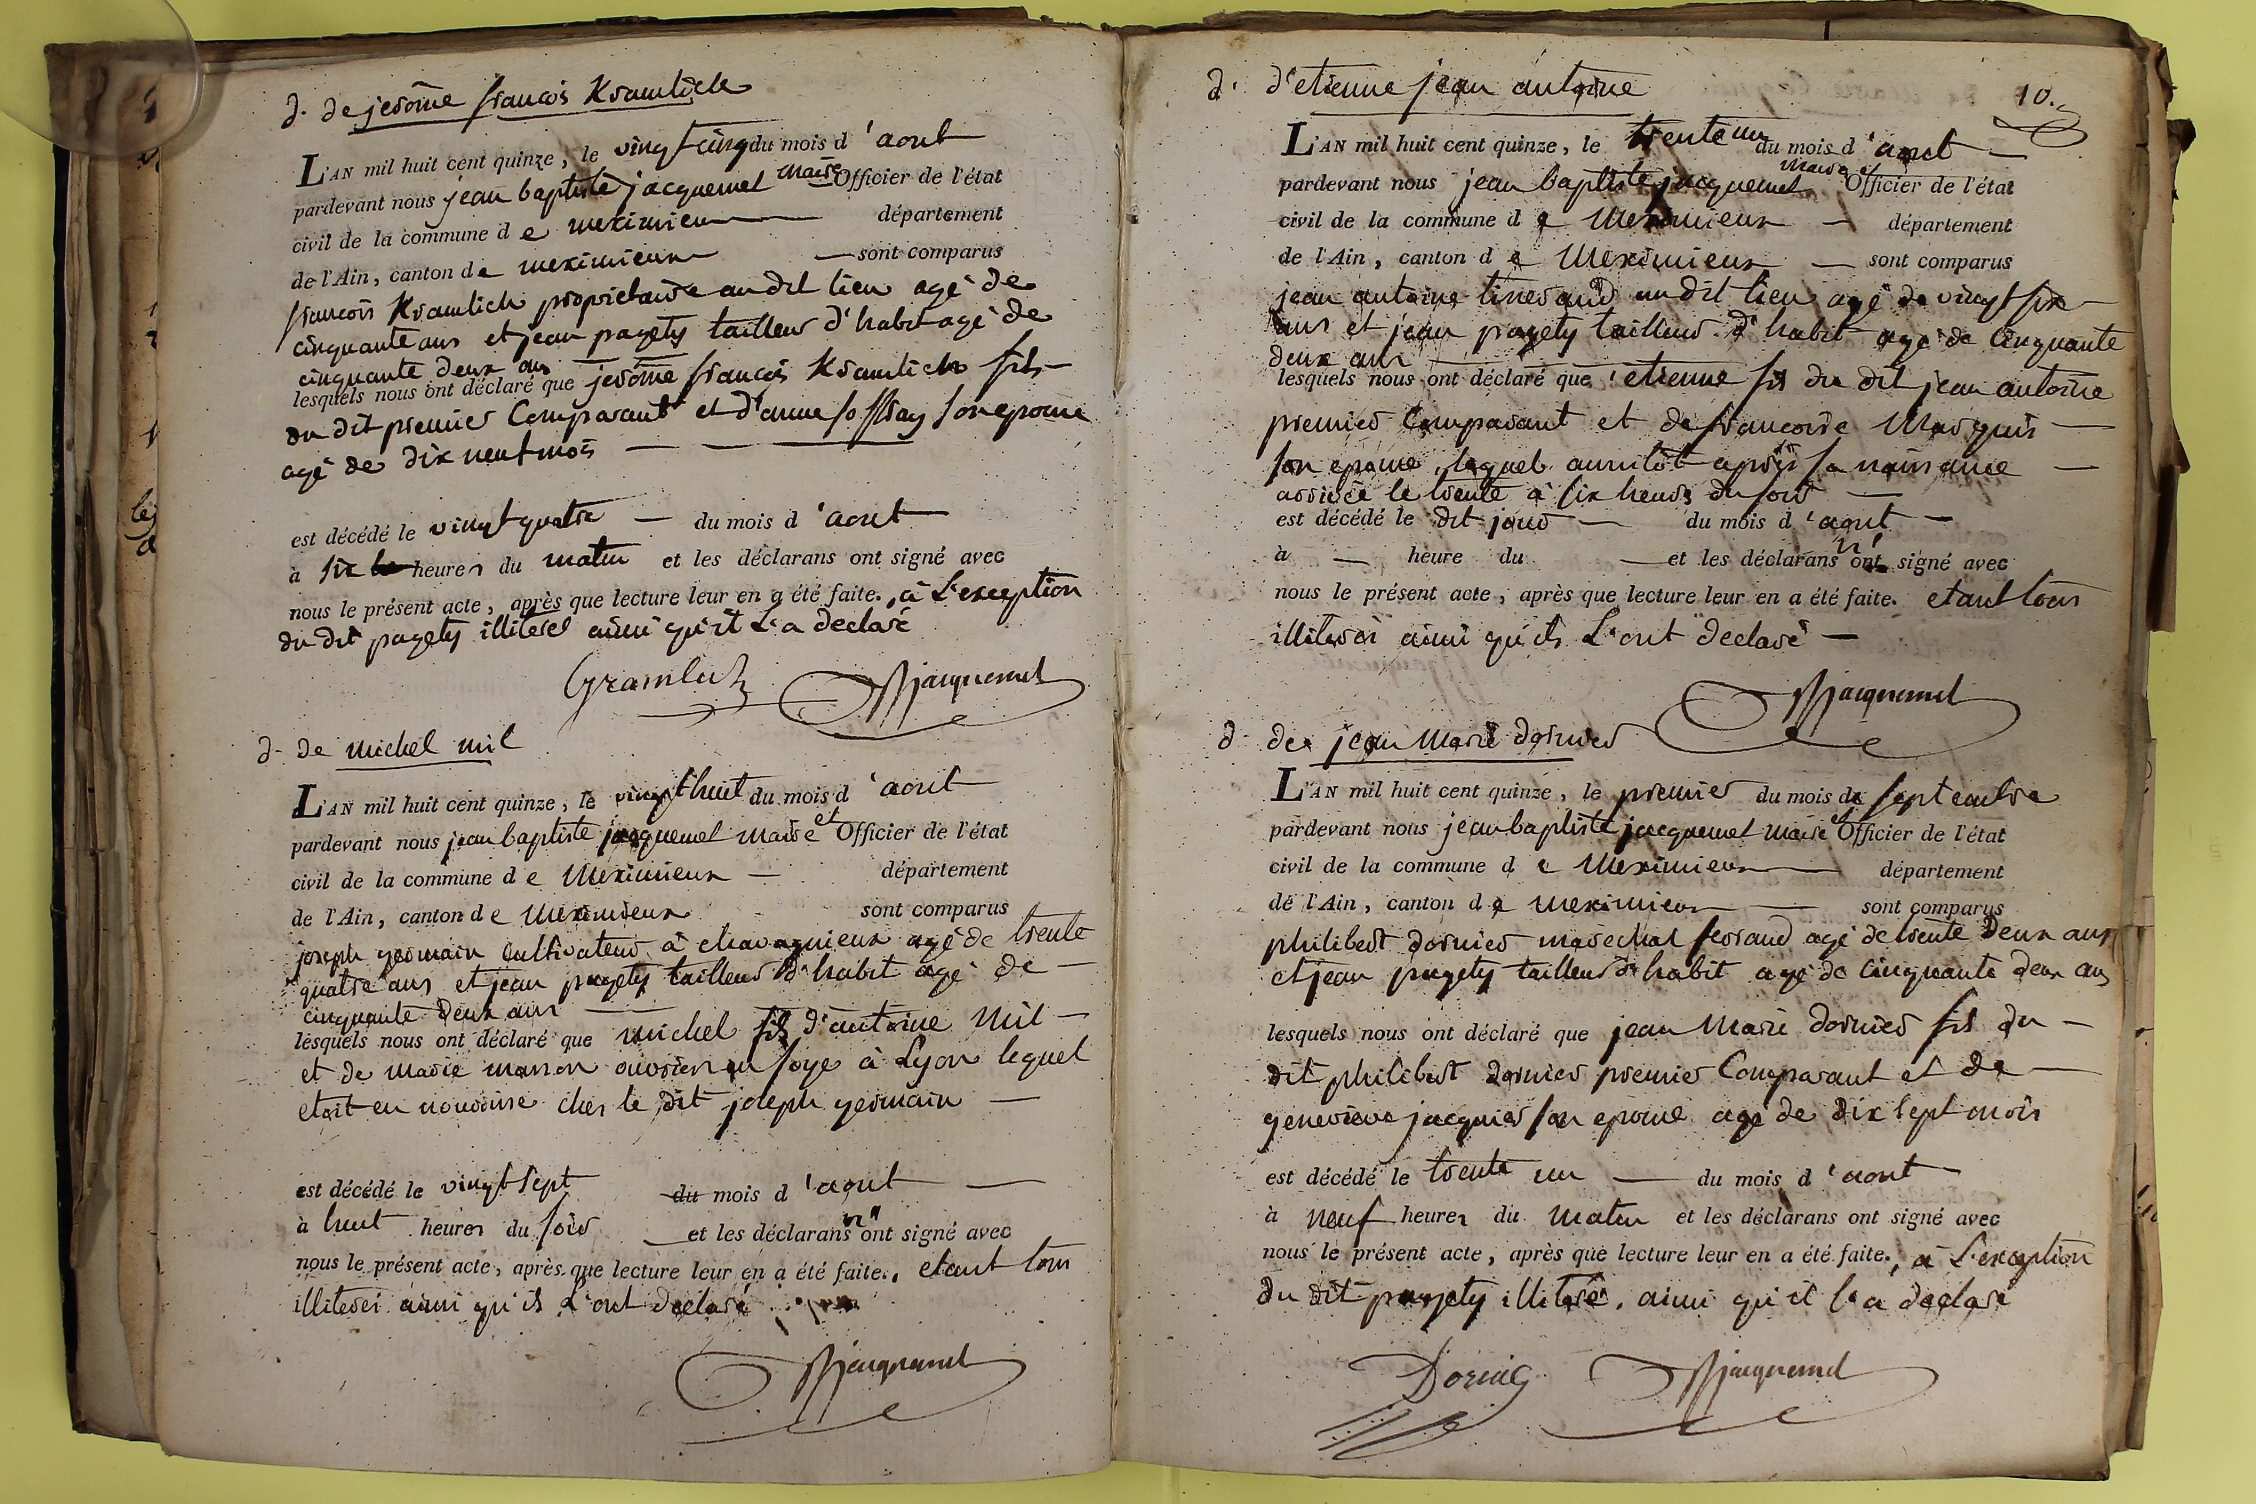 d. de jerôme francois Kramlich
L'AN mil huit cent quinze, le vingt cinq du mois d'aout
pardevant nous jean baptiste jacquemet maire Officier de l'état
civil de la commune de meximieux département
de l'Ain, canton de meximieux sont comparus
francois Kramlich proprietaire au dit lieu agé de
cinquante ans et jean pagety tailleur d'habit agé de
cinquante deux ans
lesquels nous ont déclaré que jerôme francois Kramlich fils
du dit premier Comparant et d'anne soffray son epouse
agé de dix neuf mois
est décédé le vingt quatre du mois d'aout
à six heures du matin et les déclarans ont signé avec
nous le présent acte, après que lecture leur en a été faite. à L'exception
du dit pagety illiteré ainsi qu'il L'a declaré
Gramlich Jacquemet
d. de michel mil
L'AN mil huit cent quinze, le vingt huit du mois d'aout
pardevant nous jean baptiste jacquemet maire et Officier de l'état
civil de la commune de Meximieux département
de l'Ain, canton de Meximieux sont comparus
joseph germain cultivateur à chavagnieux agé de trente
quatre ans et jean pagety tailleur d'habit agé de
cinquante deux ans
lesquels nous ont déclaré que michel fils d'antoine Mil
et de marie manon ouvrier en soye à Lyon lequel
etoit en nourrise ches le dit joseph germain
est décédé le vingt sept du mois d'aout
à huit heures du soir et les déclarans n'ont signé avec
nous le présent acte, après que lecture leur en a été faite. etant tous
illiterés ainsi qu'ils L'ont declaré
Jacquemet
10.
d. d'etienne jean antoine
L'AN mil huit cent quinze, le trente un du mois d'aout
pardevant nous jean baptiste jacquemet maire et Officier de l'état
civil de la commune de Meximieux département
de l'Ain, canton de Meximieux sont comparus
jean antoine tinerand au dit lieu agé de vingt six
ans et jean pagety tailleur d'habit agé de cinquante
deux ans
lesquels nous ont déclaré que etienne fils du dit jean antoine
premier Comparant et de francoise Marquis
son epouse, lequel aussitôt après sa naissance
arrivée le trente à six heures du soir
est décédé le dit jour du mois d'aout
à heure du et les déclarans n'ont signé avec
nous le présent acte, après que lecture leur en a été faite. etant tous
illiterés ainsi qu'ils L'ont declaré
Jacquemet
d. de jean Marie dornier
L'AN mil huit cent quinze, le premier du mois de septembre
pardevant nous jean baptiste jacquemet maire et Officier de l'état
civil de la commune de Meximieux département
de l'Ain, canton de meximieux sont comparus
philibert dornier marechal ferrand agé de trente deux ans
et jean pagety tailleur d'habit agé de cinquante deux ans
lesquels nous ont déclaré que jean Marie dornier fils du
dit philibert dornier premier Comparant et de
genevieve jacquier son epouse agé de dix sept mois
est décédé le trente un du mois d'aout
à neuf heures du matin et les déclarans ont signé avec
nous le présent acte, après que lecture leur en a été faite. à L'exception
du dit pagety illiteré. ainsi qu'il l'a declaré
Jacquemet